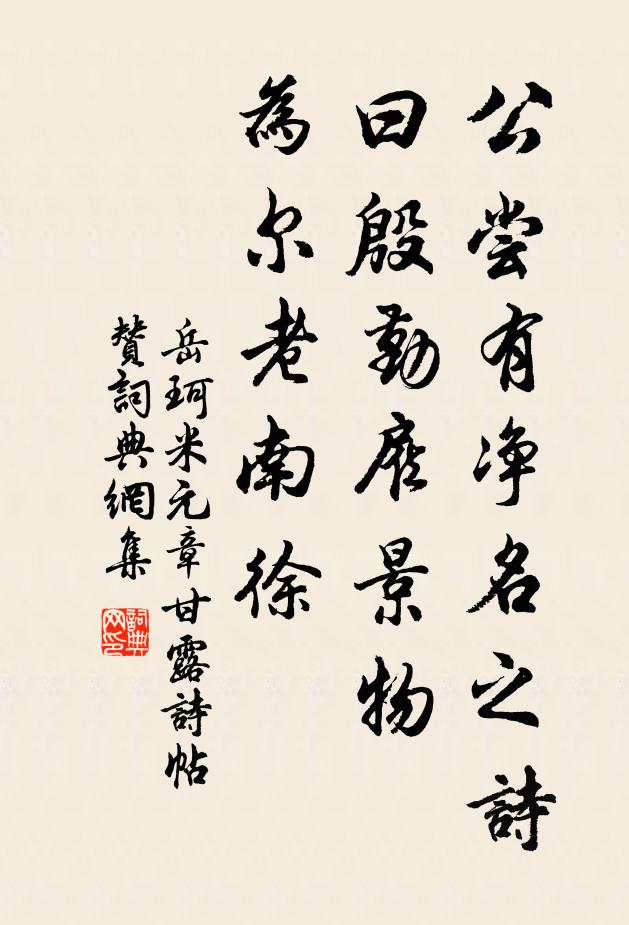 公尝有净名之詩
曰殷勤景物
為尔老南徐
岳珂米元章甘露詩帖
贊詞典網集
詞典网印